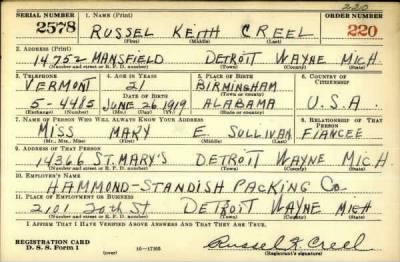 220
SERIAL NUMBER 1. NAME (Print) ORDER NUMBER
2578 RUSSEL KEITH CREEL 220
(First) (Middle) (Last)
2. ADDRESS (Print)
14752 MANSFIELD DETROIT WAYNE MICH
(Number and street or R. F. D. number) (Town) (County) (State)
3. TELEPHONE 4. AGE IN YEARS 5. PLACE OF BIRTH 6. COUNTRY OF CITIZENSHIP
VERMONT 21 BIRMINGHAM
DATE OF BIRTH (Town or county)
5-4485 JUNE 26 1919 ALABAMA U.S.A.
(Exchange) (Number) (Mo.) (Day) (Yr.) (State or country)
7. NAME OF PERSON WHO WILL ALWAYS KNOW YOUR ADDRESS 8. RELATIONSHIP OF THAT PERSON
MISS MARY E. SULLIVAN FIANCEE
(Mr., Mrs., Miss) (First) (Middle) (Last)
9. ADDRESS OF THAT PERSON
14366 ST. MARY'S DETROIT WAYNE MICH
(Number and street or R. F. D. number) (Town) (County) (State)
10. EMPLOYER'S NAME
HAMMOND-STANDISH PACKING Co.
11. PLACE OF EMPLOYMENT OR BUSINESS
2101 20th ST DETROIT WAYNE MICH
(Number and street or R. F. D. number) (Town) (County) (State)
I AFFIRM THAT I HAVE VERIFIED ABOVE ANSWERS AND THAT THEY ARE TRUE.
REGISTRATION CARD
D. S. S. Form 1 (over) 16—17105 Russel K Creel
(Registrant's signature)